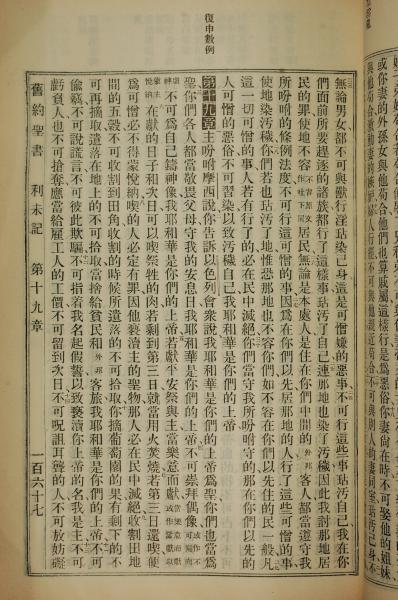 或你妻的外孫女與他苟合他們也算戚屬這樣行是爲惡俗你妻尙在時不可娶他的姐妹
復申數例
無論男女都不可與獸行淫玷染己身這是可憎嫌的惡事不可行這些事玷汚自己我在你
們面前所要趕逐的諸族都行了這樣事玷汚了自己連那地也染了汚穢因此我討那地居
民的罪使地不容居民無論是本處人是住在你們中間的外邦客人都當遵守我
所吩咐的條例法度不可行這可憎的事因爲在你們以先居那地的人行了這些可憎的事
使地染汚穢你們若也玷汚了地惟恐那地也不容你們如不容在你們以先住的民一般凡
這一切可憎的事人若有行了的必在民中滅絕你們當守我所吩咐守的那在你們以先的
人可憎的惡俗不可習染以致汚穢自己我耶和華是你們的上帝
第十九章主吩咐摩西說你告訴以色列會衆說我耶和華是你們的上帝爲聖你們也當爲
聖你們各人都當敬畏父母守我的安息日我耶和華是你們的上帝不可崇拜偶像
不可爲自己鑄神像我耶和華是你們的上帝若獻平安祭與主當樂意而獻
在獻的日子和次日可以喫祭牲的肉若剩到第三日就當用火焚燒若第三日還喫便
爲可憎必不得蒙悅納喫的人必定有罪因他褻瀆主的聖物那人必在民中滅絕收割田地
間的五穀不可收割到田角收割的時候所遺落的不可拾取你摘葡萄園的果有剩下的不
可再摘取遺落在地上的不可拾取當捨給貧民和外邦客旅我耶和華是你們的上帝不可
偷竊不可說謊言不可彼此欺騙不可指着我名起假誓以致褻瀆你上帝的名我是主不可
虧負人也不可搶奪應當給雇工人的工價不可留到次日不可呪詛耳聾的人不可放妨礙
舊約聖書 利未記 第十九章 一百六十七